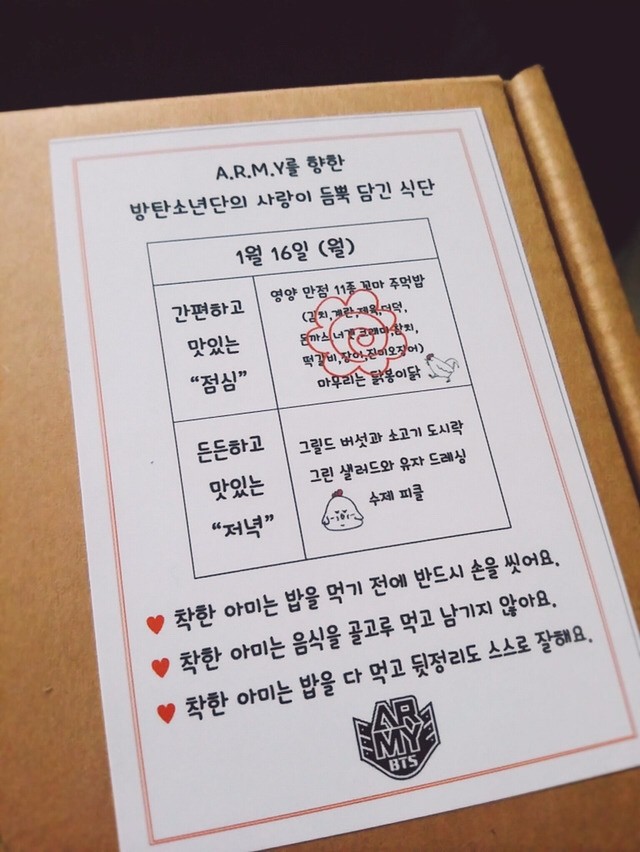 A.R.M.Y를 향한
방탄소년단의 사랑이 듬뿍 담긴 식단
1월 16일 (월)
간편하고
맛있는
“점심”
영양 만점 11종 꼬마 주먹밥
(김치,계란,제육,더덕,
돈까스,너겟,크래미,참치,
떡갈비,장어,진미오징어)
마무리는 닭봉이닭
든든하고
맛있는
“저녁”
그릴드 버섯과 소고기 도시락
그린 샐러드와 유자 드레싱
수제 피클
♥ 착한 아미는 밥을 먹기 전에 반드시 손을 씻어요.
♥ 착한 아미는 음식을 골고루 먹고 남기지 않아요.
♥ 착한 아미는 밥을 다 먹고 뒷정리도 스스로 잘해요.
AR
MY
BTS